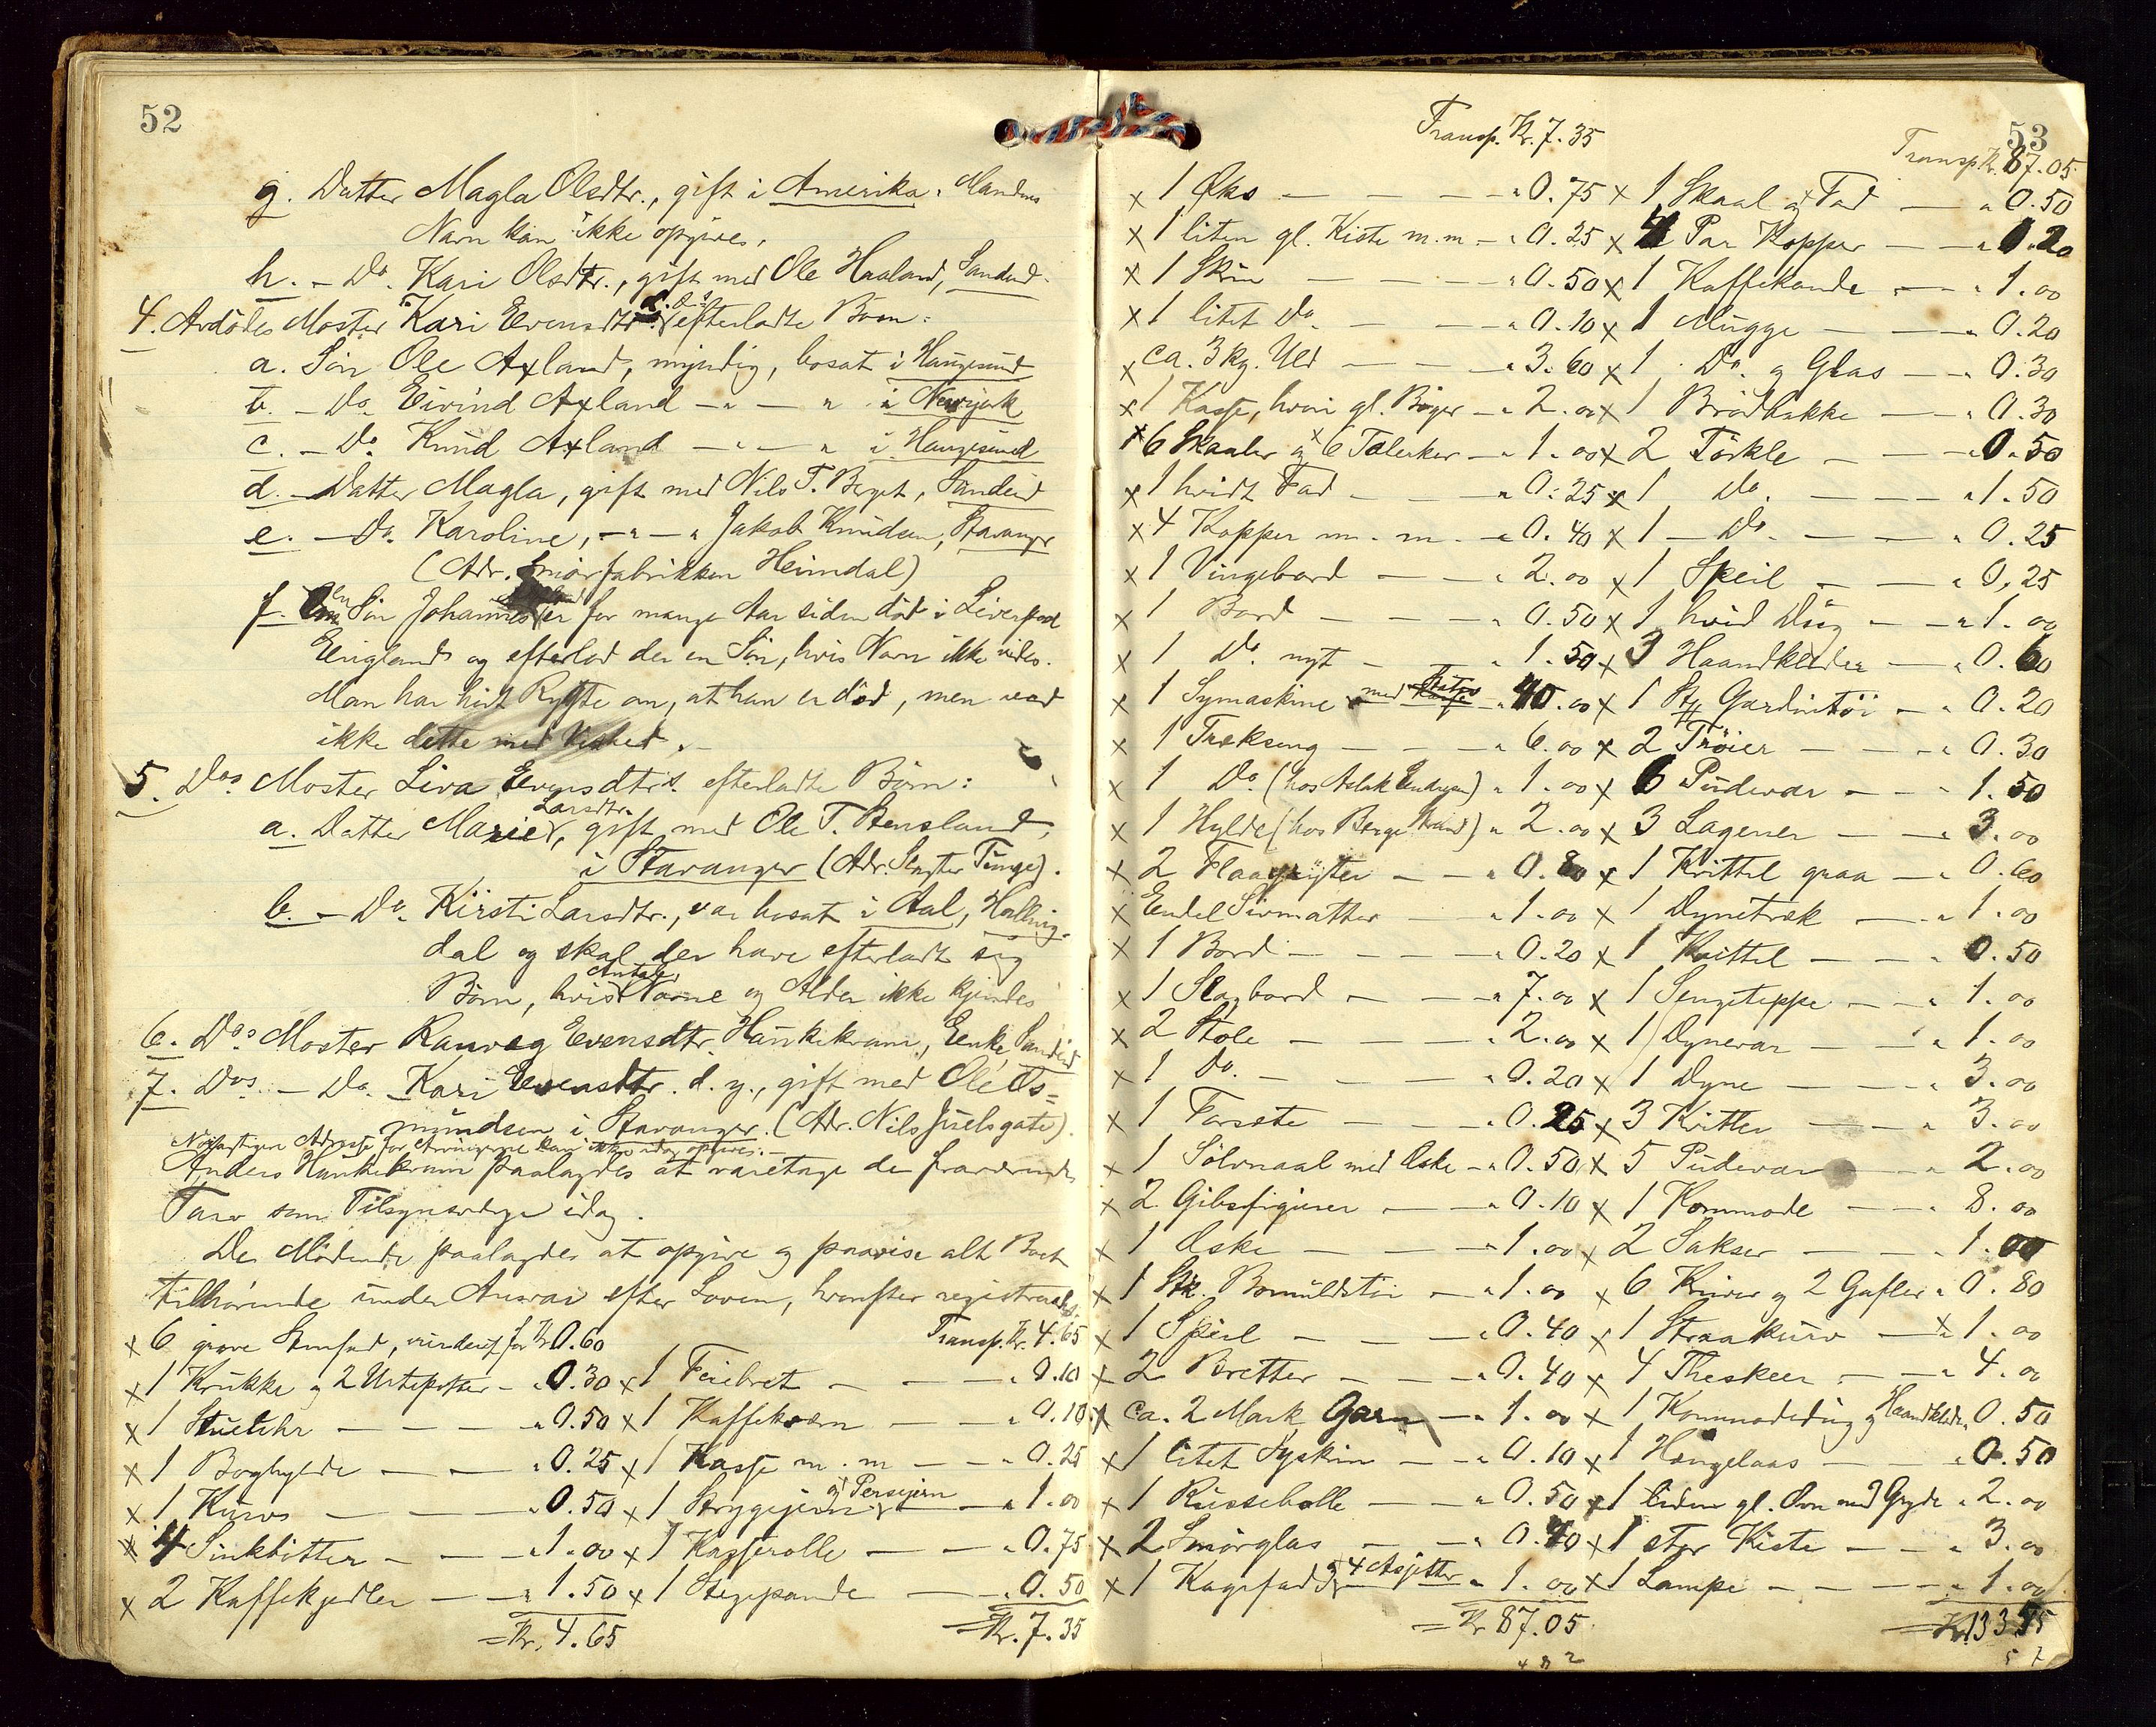 52
g. Datter Magla Olsdtr., gift i Amerika. Mandens
Navn kan ikke opgives.
h. - Do. Kari Olsdtr., gift med Ole Haaland, Sandeid.
4. Avdødes Moster Kari Evensdtr. d. æ.s efterladte Børn:
a. Søn Ole Axland, myndig, bosat i Haugesund
b. - Do. Eivind Axland - " - " i Newyork
c. - Do. Knud Axland - " - " i Haugesund
d. - Datter Magla, gift med Nils T. Berget, Sandeid
e. - Do. Karoline, - " - " Jakob Knudsen, Stavanger
(Adr. Smørfabrikken Heimdal)
f. En Søn Johannes er for mange Aar siden død i Liverpool
England og efterlod der en Søn, hvis Navn ikke vides.
Man har hørt Rygte om, at han er død, men ved
ikke dette med Vished. -
5. Dos Moster Liva Evensdtrs. efterladte Børn:
a. Datter Marie Larsdtr., gift med Ole T. Stensland,
i Stavanger (Adr. Slagter Tunge).
b. - Do. Kirsti Larsdtr., var bosat i Aal, Halling-
dal og skal der have efterladt sig
Børn, hvis Antal, Navne og Alder ikke kjendes
6. Dos Moster Ranveg Evensdtr. Haukekram, Enke, Sandeid
7. Dos - Do. Kari Evensdtr. d. y., gift med Ole Os=
mundsen i Stavanger. (Adr. Nils Juelsgate).
Nøiagtigere Adresse for Arvingerne kan ikke idag opgives. -
Anders Haukekram paalagdes at varetage de fraværendes
Tarv som Tilsynsværge idag.
De Mødende paalagdes at opgive og paavise alt Boet
tilhørende under Ansvar efter Loven, hvorefter registreredes:
x 6 grove Stenfad, vurderet for Kr. 0.60
x 1 Krukke og 2 Urtepotter - " 0.30
x 1 Stueuhr - - - " 0.50
x 1 Boghylde - - " 0.25
x 1 Kurv - - - " 0.50
x 4 Sinkbøtter - - - " 1.00
x 2 Kaffekjedler - - " 1.50
= Kr. 4.65
Transp. Kr. 4.65
x 1 Feiebret - - - " 0.10
x 1 Kaffekværn - - " 0.10
x 1 Kasse m. m - - " 0.25
x 1 Strygejern og Persejern - " 1.00
x 1 Kasserolle - - " 0.75
x 1 Stegepande - " 0.50
= Kr. 7.35
53
Transp. Kr. 7.35
x 1 Øks - - - " 0.75
x 1 liten gl. Kiste m.m - " 0.25
x 1 Skrin - - - " 0.50
x 1 litet Do. - - " 0.10
x ca. 3 kg. Uld - - " 3.60
x 1 Kasse, hvori gl. Bøger - " 2.00
x 6 Skaaler og x 6 Tallerker - " 1.00
x 1 hvidt Fad - - - " 0.25
x 4 Kopper m. m. - " 0.40
x 1 Vingebord - - " 2.00
x 1 Bord - - - " 0.50
x 1 Do. nyt - - " 1.50
x 1 Symaskine med " 40.00
x 1 Trækseng - - - " 6.00
x 1 Do. (hos Aslak Endresen) " 1.00
x 1 Hylde (hos Berge Strand) " 2.00
x 2 Flaagryter - - " 0.80
x Endel Sivmatter - " 1.00
x 1 Bord - - - " 0.20
x 1 Slagbord - - " 7.00
x 2 Stole - - - " 2.00
x 1 Do. - - - " 0.20
x 1 Forsæte - - " 0.25
x 1 Sølvnaal med Æske - " 0.50
x 2 Gibsfigurer - - " 0.10
x 1 Æske - - - " 1.00
x 1 Stk. Bomuldstøi - " 1.00
x 1 Speil - - - " 0.40
x 2 Bretter - - - " 0.40
x ca. 2 Mark Garn - " 1.00
x 1 litet Syskrin - - " 0.10
x 1 Russebolle - - " 0.50
x 2 Smørglas - - " 0.40
x 1 Kagefad og 4 Asjetter - " 1.00
= Kr 87.05
Transp. Kr. 87.05
x 1 Skaal og x Fad - " 0.50
x 4 Par Kopper - - " 0.20
x 1 Kaffekande - - " 1.00
x 1 Mugge - - " 0.20
x 1 Do. og Glas - " 0.30
x 1 Brødbakke - - " 0.30
x 2 Tørklæ - - " 0.50
x 1 Do. - - - " 1.50
x 1 - Do. - - " 0.25
x 1 Speil - - " 0.25
x 1 hvid Dug - - " 1.00
x 3 Haandklæder - " 0.60
x 1 Stk Gardintøi - " 0.20
x 2 Trøier - - - " 0.30
x 6 Pudevar - - " 1.50
x 3 Lagener - - " 3.00
x 1 Kvittel graa - " 0.60
x 1 Dynetræk - " 1.00
x 1 Kvittel - - " 0.50
x 1 Sengeteppe - " 1.00
x 1 Dynevar - - " 1.00
x 1 Dyne - - - " 3.00
x 3 Kvitler - - " 3.00
x 5 Pudevar - " 2.00
x 1 Kommode - - " 8.00
x 2 Sakser - - " 1.00
x 6 Kniver og 2 Gafler " 0.80
x 1 Straakurv - x " 1.00
x 4 Theskeer - - " 4.00
x 1 Kommodedug og Haandklæde " 0.50
x 1 Hængelaas - - " 0.50
x 1 liden gl. Ovn med Gryde " 2.00
x 1 stor Kiste - - " 3.00
x 1 Lampe - - - " 1.00